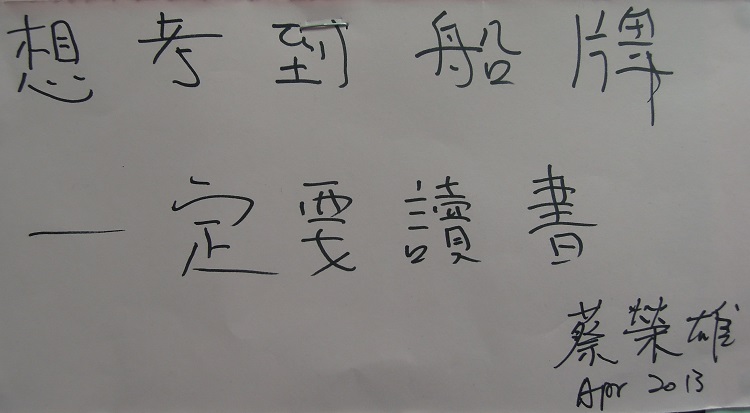 想考到船牌
一定要讀書
蔡榮雄
Apr 2013